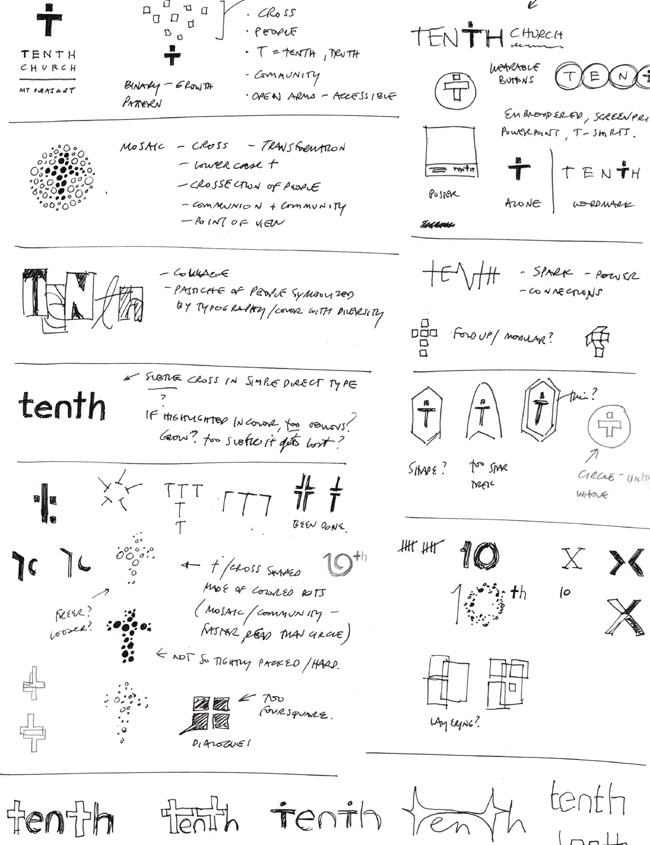 TENTH
CHURCH
MT PLEASANT
BINARY - GROWTH
PATTERN
· CROSS
· PEOPLE
· T = TENTH, TRUTH
· COMMUNITY
· OPEN ARMS - ACCESSIBLE
TENTH CHURCH
WEARABLE
BUTTONS
TENT
EMBROIDERED, SCREENPRI
POWERPOINT, T-SHIRTS.
TENTH
POSTER
ALONE
TENTH
WORDMARK
MOSAIC - CROSS - TRANSFORMATION
- LOWERCASE t
- CROSSECTION OF PEOPLE
- COMMUNION + COMMUNITY
- POINT OF VIEW
TENth
- COLLAGE
- PASTICHE OF PEOPLE SYMBOLIZED
BY TYPOGRAPHY/COLOR WITH DIVERSITY
tENtH
- SPARK - POWER
- CONNECTIONS
FOLD UP/MODULAR?
tenth
SUBTLE CROSS IN SIMPLE DIRECT TYPE
?
IF HIGHLIGHTED IN COLOR, too OBVIOUS?
GROW? too SUBTLE it gets lost?
thin?
SHAPE?
too STAR
TREK
CIRCLE - UNI
WHOLE
TTT
T
T
BEEN DONE.
FREER?
LOOSER?
t/CROSS SHAPED
MADE OF COLORED DOTS
(MOSAIC/COMMUNITY -
FASTER READ THAN CIRCLE)
10th
NOT SO TIGHTLY PACKED/HARD.
TOO
FOURSQUARE.
DIALOGUE!
10
X
X
10th
10
X
LAYERING?
tenth
tenth
tenth
tenth
tenth
tenth